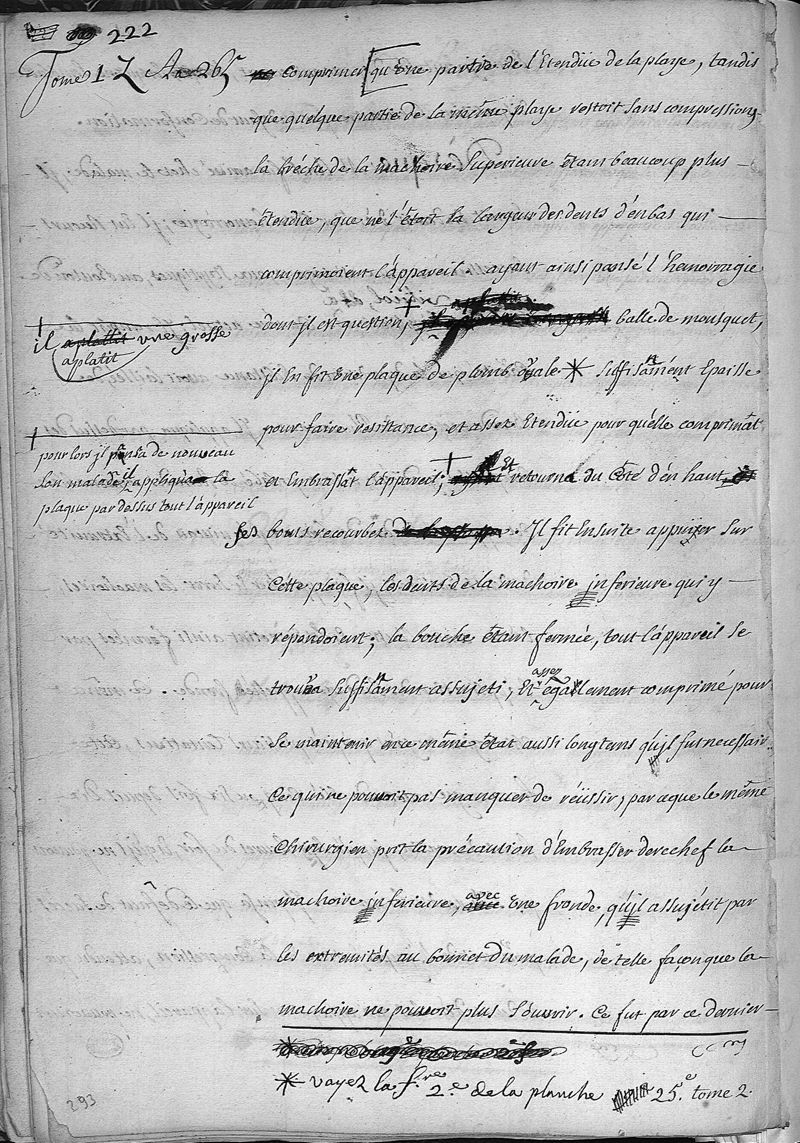 pag 222
Tome 1 Z Aa 265
comprimer qu'une partie de l'Etendüe de la playe, tandis
que quelque partie de la même playe restoit sans compression,
la bréche de la machoire Superieure étant beaucoup plus
Etendüe, que ne l'étoit la largeur des dents d'en bas qui
comprimoient l'appareil ayant ainsi pansé l'hemorragie
dont jl est question, balle de mousquet,
il aplattit une grosse
aplatit
jl En fit une plaque de plomb ovale * suffisament Epaisse
pour faire resistance, et assez Etendüe pour qu'elle comprimât
et Embrassât l'appareil; Et retourna du Côté d'en haut
pour lors jl pansa de nouveau
son malade, il appliqua la
plaque par dessus tout l'appareil
ses bouts recourbez. Jl fit Ensuite appuier Sur
Cette plaque, les dents de la machoire jnferieure qui y
répondoient; la bouche étant fermée, tout l'appareil se
trouva suffisament assujeti, Et assez egallement comprimé pour
se maintenir en ce même état aussi longtans qu'jl fut necessair
Ce qui ne pouvoit pas manquer de réüssir, par ce que le même
Chirurgien prit la précaution d'Embrasser derechef la
machoire jnferieure, avec une fronde, qu'jl assujétit par
les extremités au bonnet du malade, de telle façon que la
machoire ne pouvoit plus S'ouvrir. Ce fut par ce dernier
* voyez la f.re 2.e de la planche 25.e tome 2.
293